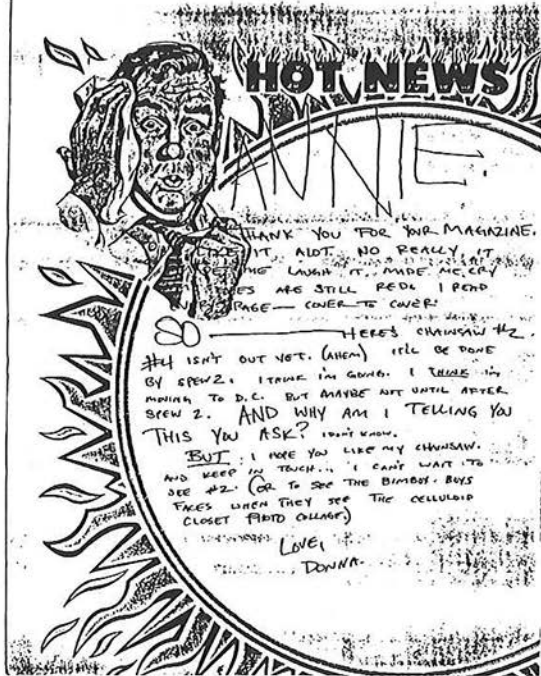 HOT NEWS
ANNIE.
THANK YOU FOR YOUR MAGAZINE.
LIKE IT ALOT. NO REALLY, IT
ME LAUGH IT MADE ME CRY
ARE STILL RED. I READ
EVERY PAGE — COVER TO COVER.
SO — HERE'S CHAINSAW #2.
#4 ISN'T OUT YET. (AHEM) IT'LL BE DONE
BY SPEW 2. I THINK I'M GOING. I THINK I'M
MOVING TO D.C. BUT MAYBE NOT UNTIL AFTER
SPEW 2. AND WHY AM I TELLING YOU
THIS YOU ASK? I DON'T KNOW.
BUT I HOPE YOU LIKE MY CHAINSAW.
AND KEEP IN TOUCH... I CAN'T WAIT TO
SEE #2. (OR TO SEE THE BIMBOY BOYS
FACES WHEN THEY SEE THE CELLULOID
CLOSET PHOTO COLLAGE.)
LOVE,
DONNA.